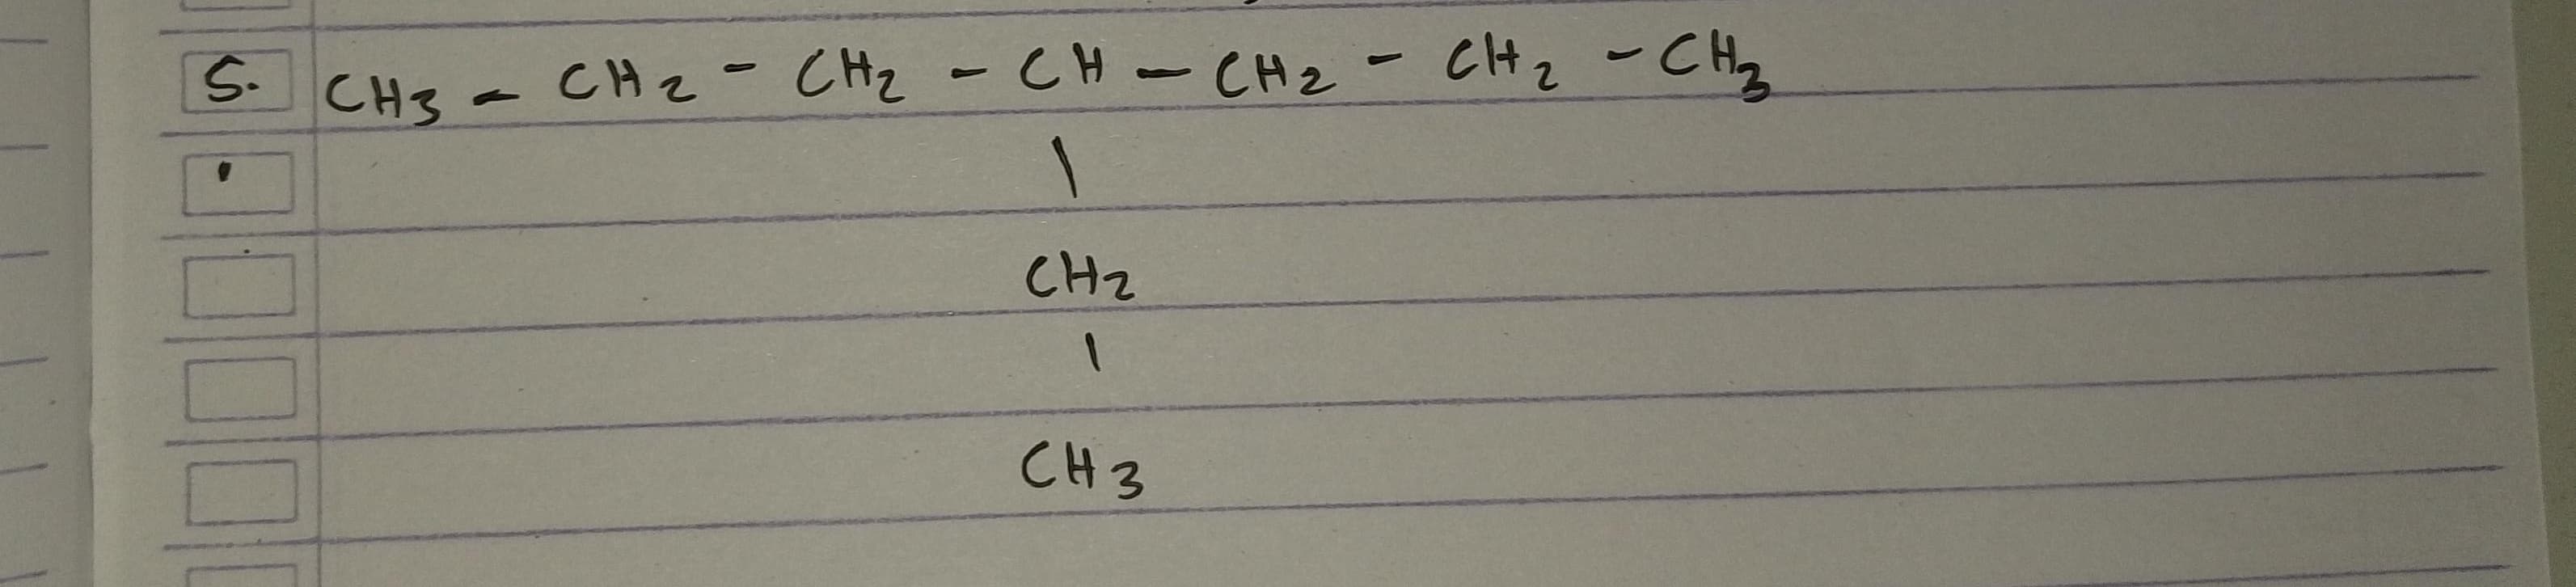 5. CH3 - CH2 - CH2 - CH - CH2 - CH2 - CH3
|
CH2
|
CH3